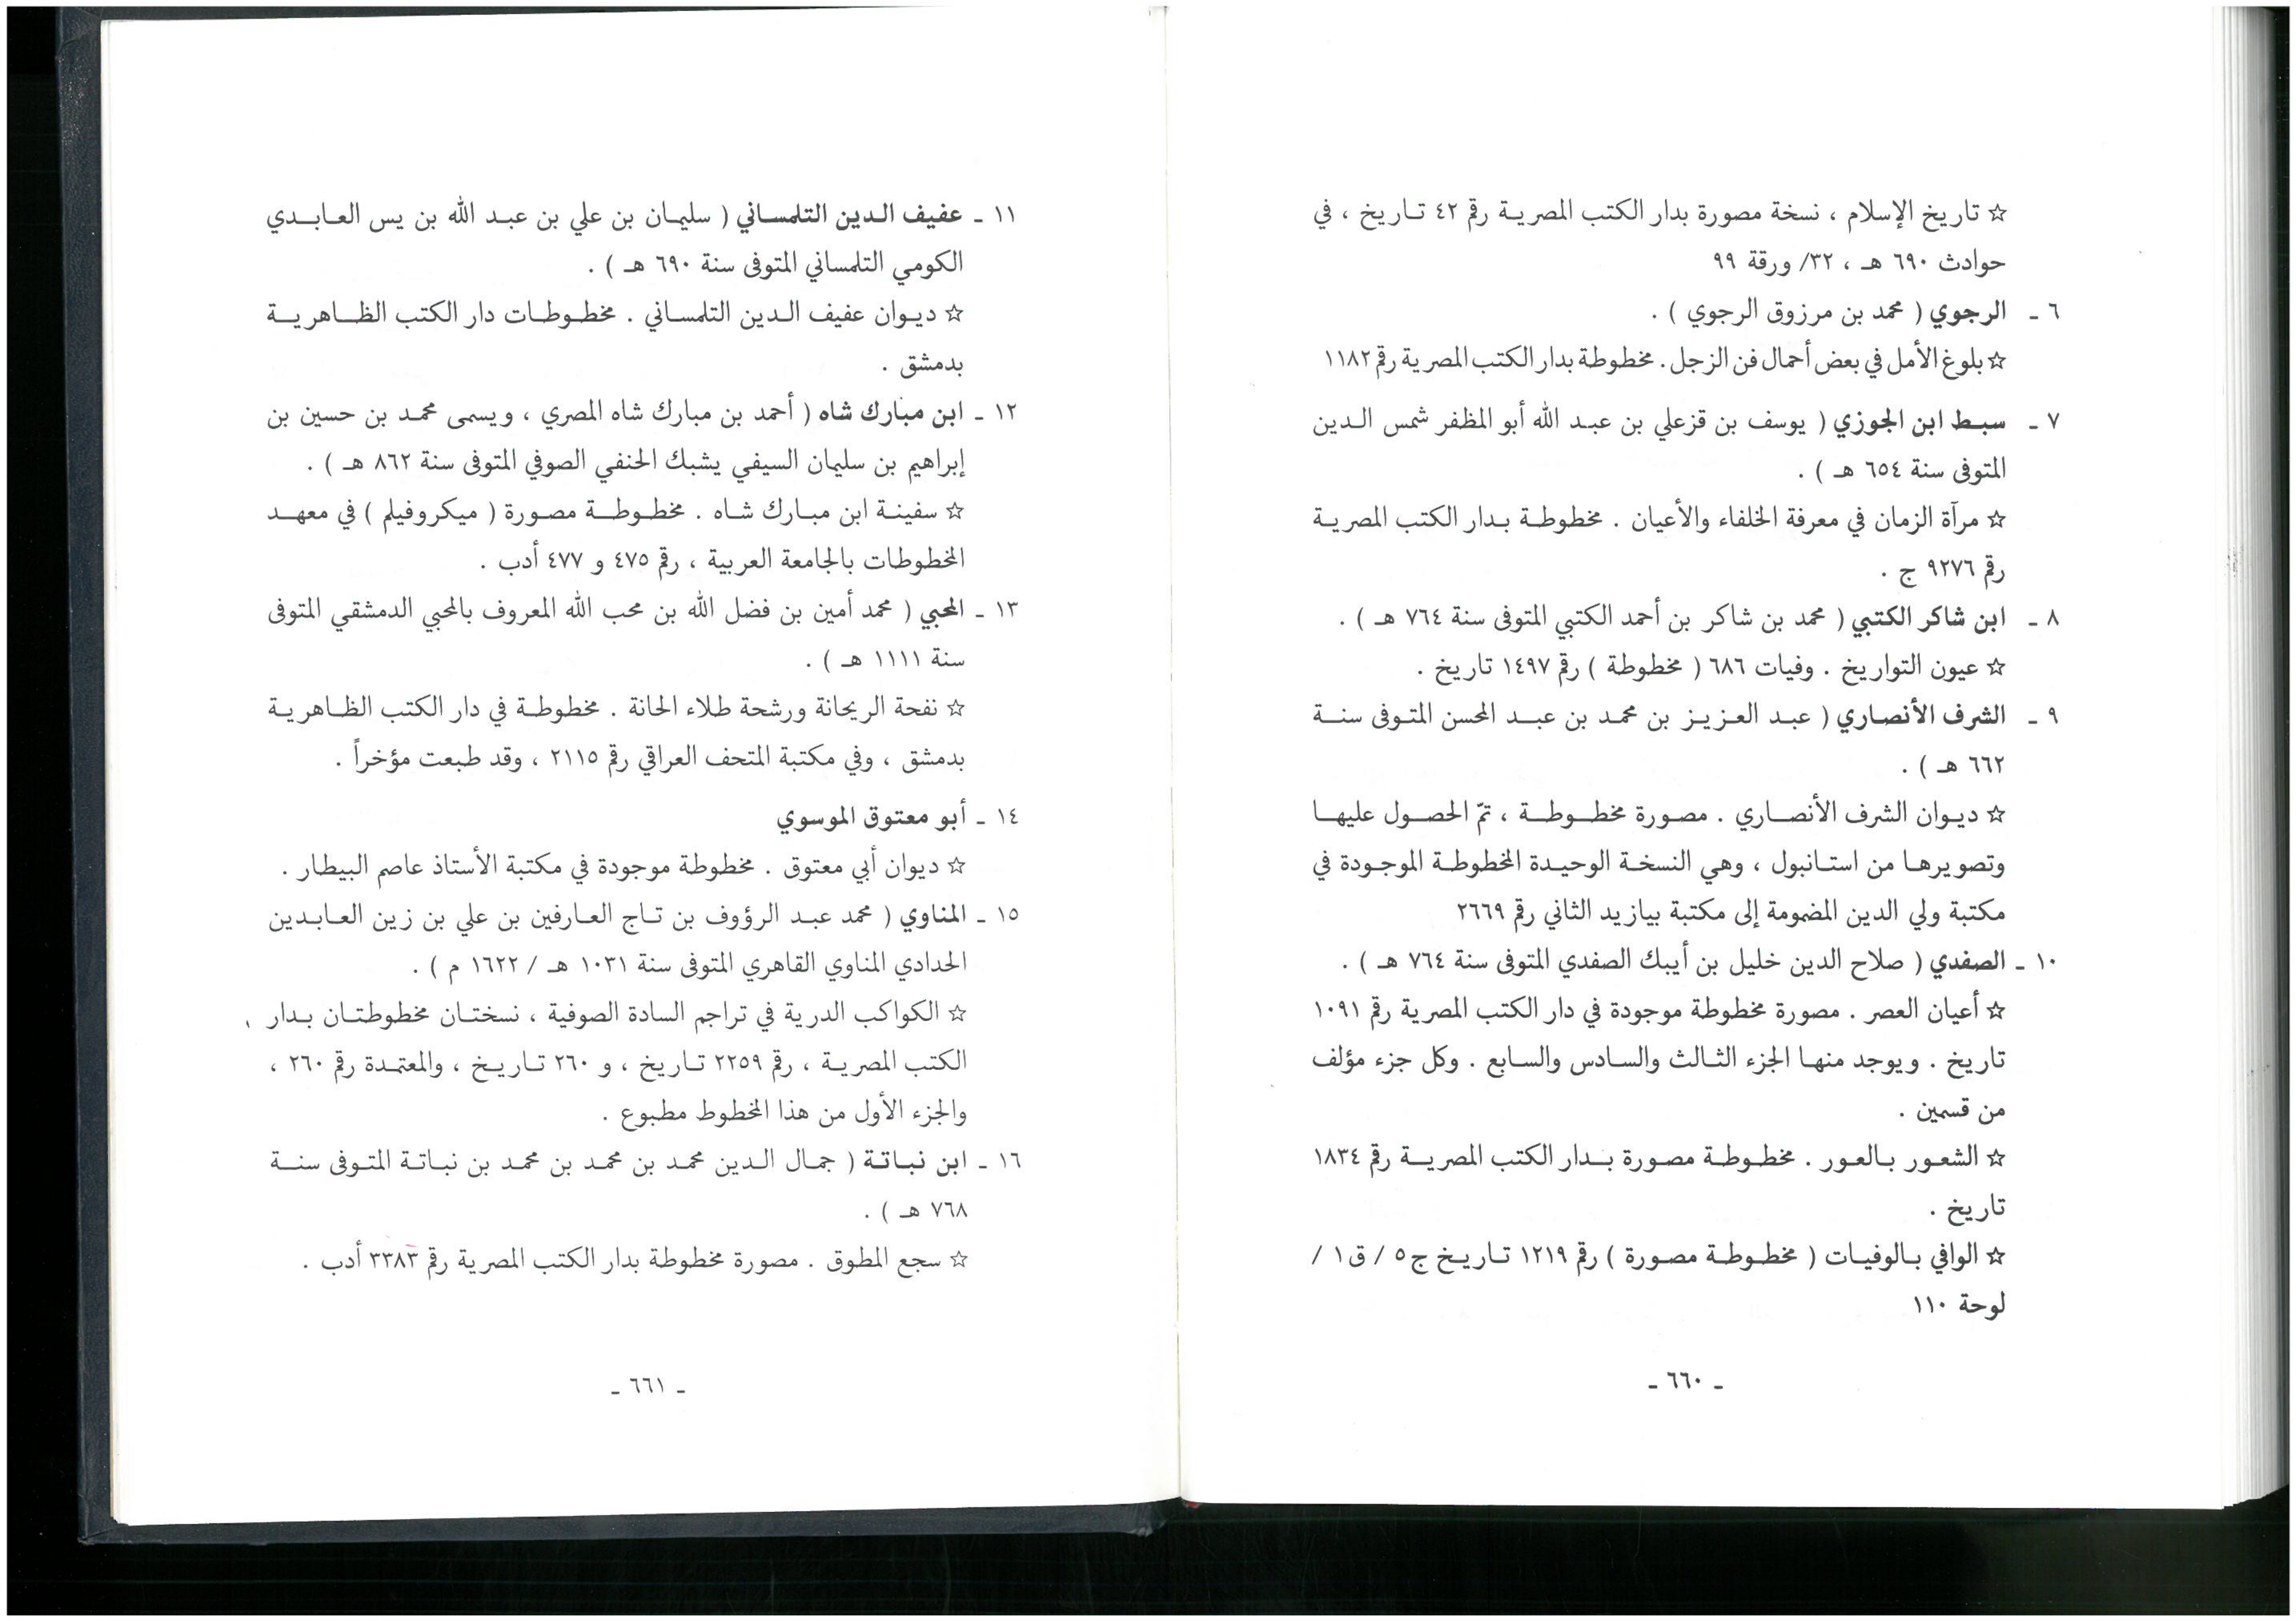 ☆ تاريخ الإسلام ، نسخة مصورة بدار الكتب المصرية رقم ٤٢ تاريخ ، في
حوادث ٦٩٠ هـ ، ٣٢/ ورقة ٩٩
٦ ـ الرجوي ( محمد بن مرزوق الرجوي ) .
☆ بلوغ الأمل في بعض أحمال فن الزجل . مخطوطة بدار الكتب المصرية رقم ١١٨٢
٧ ـ سبط ابن الجوزي ( يوسف بن قزعلي بن عبد الله أبو المظفر شمس الدين
المتوفى سنة ٦٥٤ هـ ) .
☆ مرآة الزمان في معرفة الخلفاء والأعيان . مخطوطة بدار الكتب المصرية
رقم ٩٢٧٦ ج .
٨ ـ ابن شاكر الكتبي ( محمد بن شاكر بن أحمد الكتبي المتوفى سنة ٧٦٤ هـ ) .
☆ عيون التواريخ . وفيات ٦٨٦ ( مخطوطة ) رقم ١٤٩٧ تاريخ .
٩ ـ الشرف الأنصاري ( عبد العزيز بن محمد بن عبد المحسن المتوفى سنة
٦٦٢ هـ ) .
☆ ديوان الشرف الأنصاري . مصورة مخطوطة ، تمّ الحصول عليها
وتصويرها من استانبول ، وهي النسخة الوحيدة المخطوطة الموجودة في
مكتبة ولي الدين المضمومة إلى مكتبة بيازيد الثاني رقم ٢٦٦٩
١٠ ـ الصفدي ( صلاح الدين خليل بن أيبك الصفدي المتوفى سنة ٧٦٤ هـ ) .
☆ أعيان العصر . مصورة مخطوطة موجودة في دار الكتب المصرية رقم ١٠٩١
تاريخ . ويوجد منها الجزء الثالث والسادس والسابع . وكل جزء مؤلف
من قسمين .
☆ الشعور بالعور . مخطوطة مصورة بدار الكتب المصرية رقم ١٨٣٤
تاريخ .
☆ الوافي بالوفيات ( مخطوطة مصورة ) رقم ١٢١٩ تاريخ ج ٥ / ق ١ /
لوحة ١١٠
ـ ٦٦٠ ـ
١١ ـ عفيف الدين التلمساني ( سليمان بن علي بن عبد الله بن يس العابدي
الكومي التلمساني المتوفى سنة ٦٩٠ هـ ) .
☆ ديوان عفيف الدين التلمساني . مخطوطات دار الكتب الظاهرية
بدمشق .
١٢ ـ ابن مبارك شاه ( أحمد بن مبارك شاه المصري ، ويسمى محمد بن حسين بن
إبراهيم بن سليمان السيفي يشبك الحنفي الصوفي المتوفى سنة ٨٦٢ هـ ) .
☆ سفينة ابن مبارك شاه . مخطوطة مصورة ( ميكروفيلم ) في معهد
المخطوطات بالجامعة العربية ، رقم ٤٧٥ و ٤٧٧ أدب .
١٣ ـ المحبي ( محمد أمين بن فضل الله بن محب الله المعروف بالمحبي الدمشقي المتوفى
سنة ١١١١ هـ ) .
☆ نفحة الريحانة ورشحة طلاء الحانة . مخطوطة في دار الكتب الظاهرية
بدمشق ، وفي مكتبة المتحف العراقي رقم ٢١١٥ ، وقد طبعت مؤخراً .
١٤ ـ أبو معتوق الموسوي
☆ ديوان أبي معتوق . مخطوطة موجودة في مكتبة الأستاذ عاصم البيطار .
١٥ ـ المناوي ( محمد عبد الرؤوف بن تاج العارفين بن علي بن زين العابدين
الحدادي المناوي القاهري المتوفى سنة ١٠٣١ هـ / ١٦٢٢ م ) .
☆ الكواكب الدرية في تراجم السادة الصوفية ، نسختان مخطوطتان بدار
الكتب المصرية ، رقم ٢٢٥٩ تاريخ ، و ٢٦٠ تاريخ ، والمعتمدة رقم ٢٦٠ ،
والجزء الأول من هذا المخطوط مطبوع .
١٦ ـ ابن نباتة ( جمال الدين محمد بن محمد بن محمد بن نباتة المتوفى سنة
٧٦٨ هـ ) .
☆ سجع المطوق . مصورة مخطوطة بدار الكتب المصرية رقم ٣٣٨٣ أدب .
ـ ٦٦١ ـ